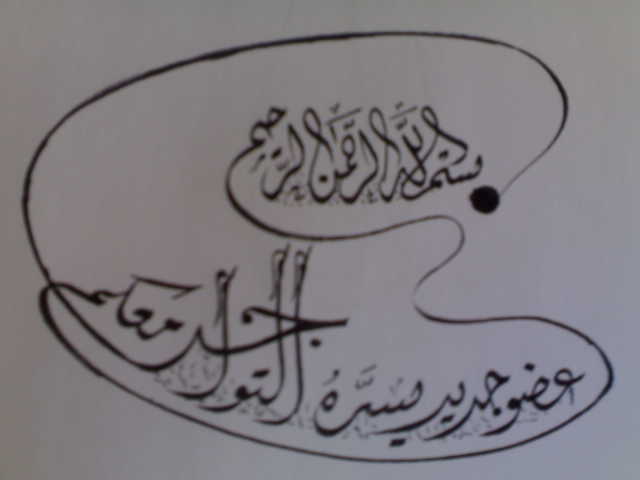 بسم الله الرحمن الرحيم
عضو جديد يسرّهُ التواجد معكم